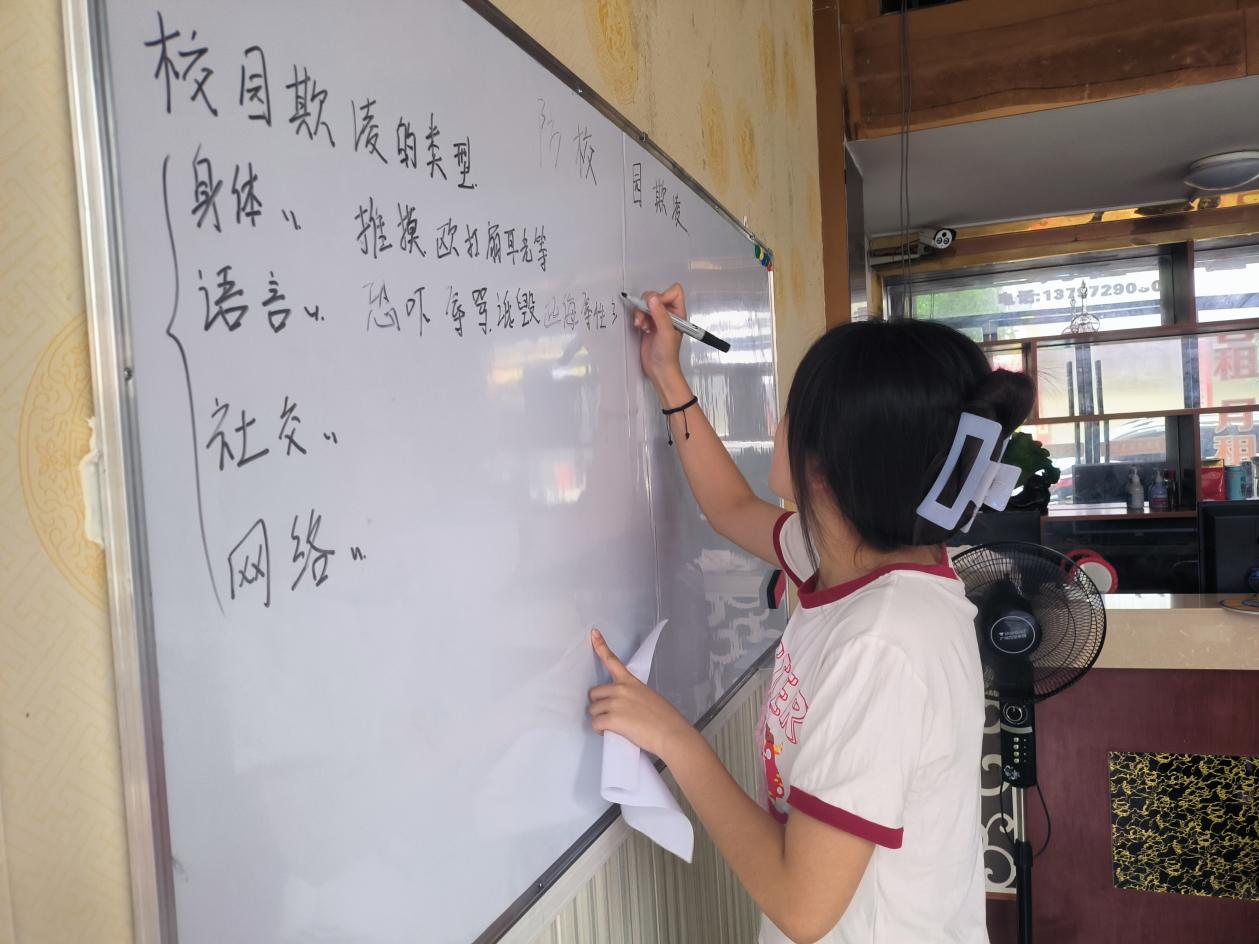 校园欺凌的类型
防校园欺凌
身体〃 推摸欧打扇耳光等
语言〃 恐吓辱骂诋毁
社交〃
网络〃
电话:137
租
月租